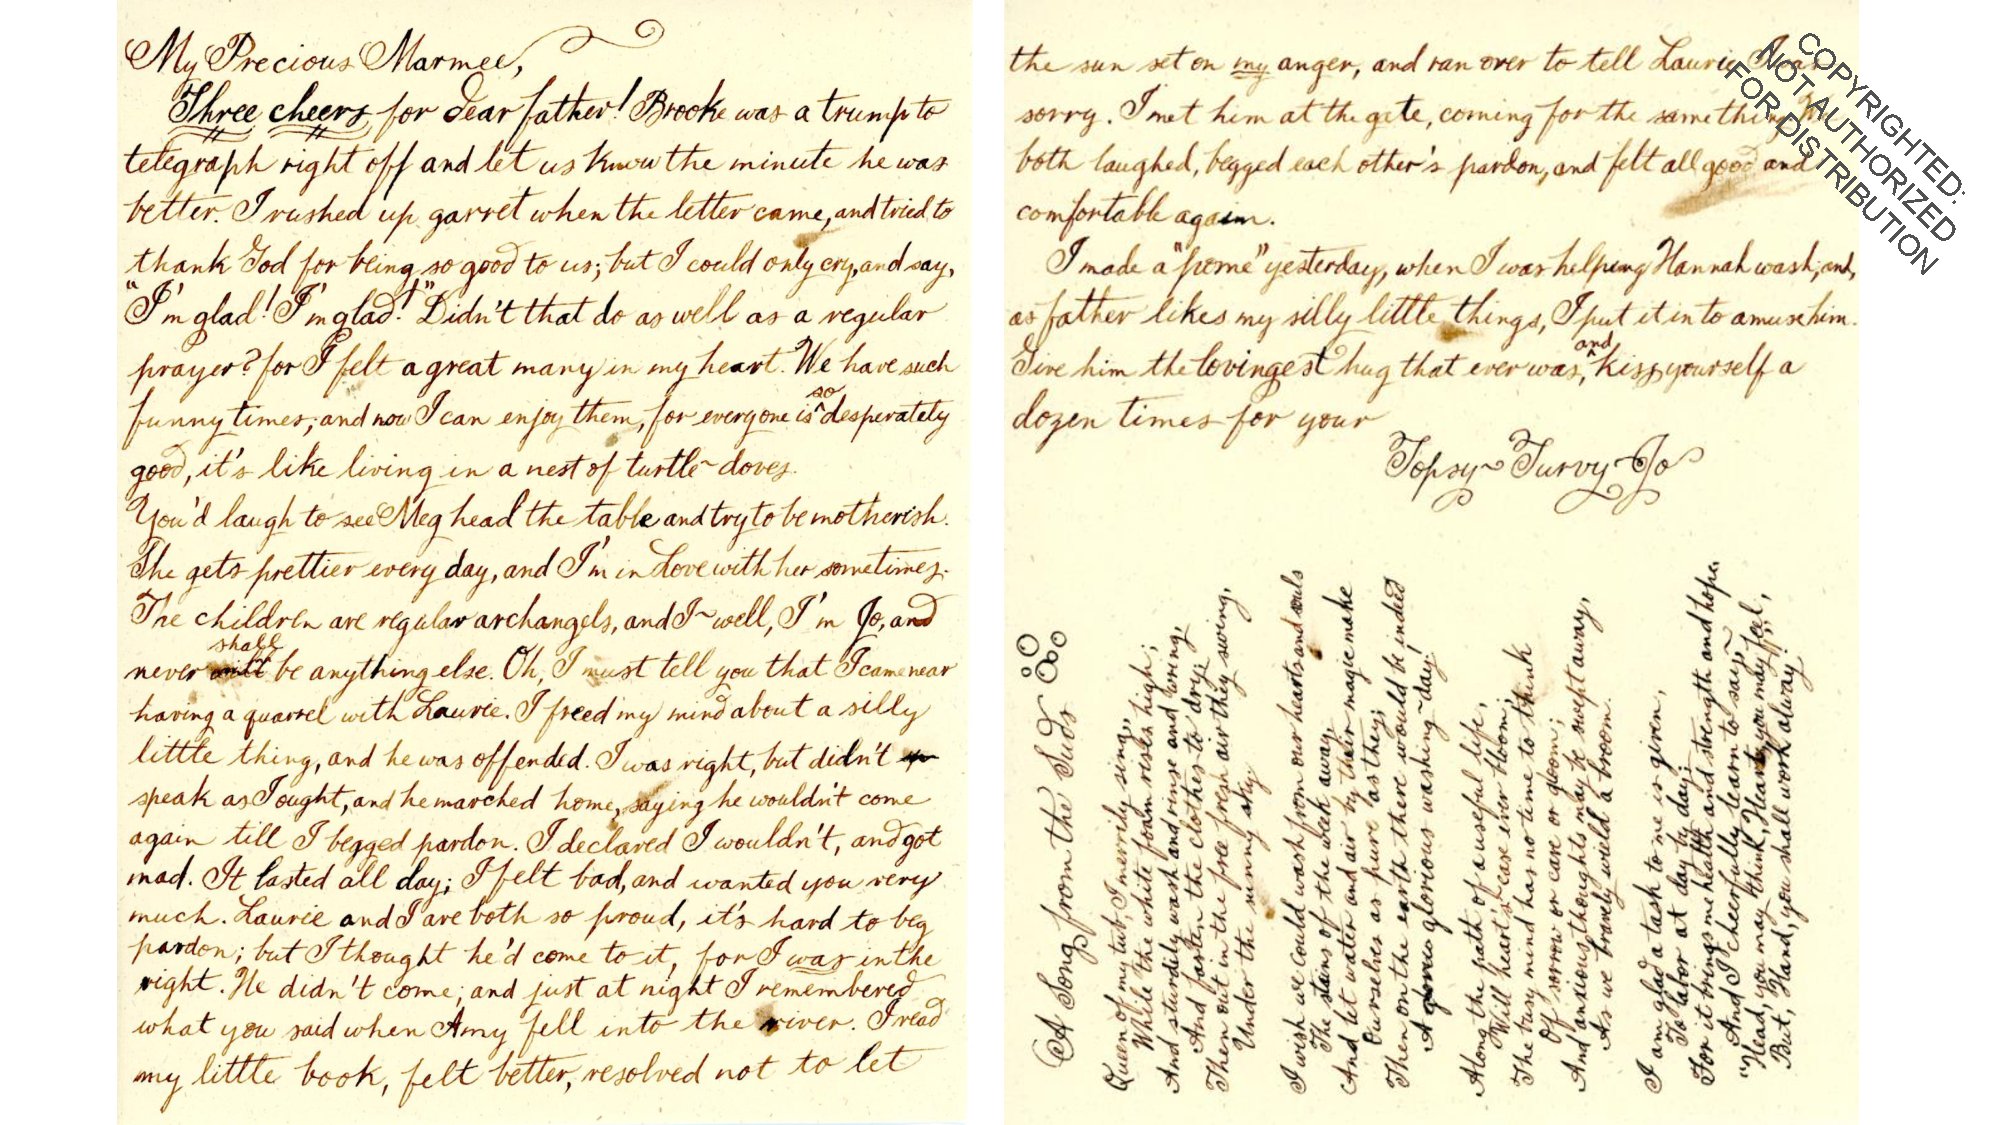 My Precious Marmee,
Three cheers for dear father! Brooke was a trump to
telegraph right off and let us know the minute he was
better. I rushed up garret when the letter came, and tried to
thank God for being so good to us; but I could only cry, and say,
"I'm glad! I'm glad!" Didn't that do as well as a regular
prayer? for I felt a great many in my heart. We have such
funny times; and now I can enjoy them, for everyone is so desperately
good, it's like living in a nest of turtle-doves.
You'd laugh to see Meg head the table and try to be motherish.
She gets prettier every day, and I'm in Love with her sometimes.
The children are regular archangels, and I - well, I'm Jo, and
never shall be anything else. Oh, I must tell you that I came near
having a quarrel with Laurie. I freed my mind about a silly
little thing, and he was offended. I was right, but didn't
speak as I ought, and he marched home, saying he wouldn't come
again till I begged pardon. I declared I wouldn't, and got
mad. It lasted all day; I felt bad, and wanted you very
much. Laurie and I are both so proud, it's hard to beg
pardon; but I thought he'd come to it, for I was in the
right. He didn't come; and just at night I remembered
what you said when Amy fell into the river. I read
my little book, felt better, resolved not to let
the sun set on my anger, and ran over to tell Laurie I was
sorry. I met him at the gate, coming for the same thing. We
both laughed, begged each other's pardon, and felt all good and
comfortable again.
I made a "pome" yesterday, when I was helping Hannah wash; and,
as father likes my silly little things, I put it in to amuse him.
Give him the lovingest hug that ever was, and kiss yourself a
dozen times for your
Topsy-Turvy-Jo
A Song from the Suds
Queen of my tub, I merrily sing,
While the white foam rises high;
And sturdily wash and rinse and wring,
And fasten the clothes to dry;
Then out in the free fresh air they swing,
Under the sunny sky.
I wish we could wash from our hearts and souls
The stains of the week away,
And let water and air by their magic make
Ourselves as pure as they;
Then on the earth there would be indeed
A glorious washing-day!
Along the path of a useful life,
Will heart's-ease ever bloom;
The busy mind has no time to think
Of sorrow or care or gloom;
And anxious thoughts may be swept away,
As we bravely wield a broom.
I am glad a task to me is given,
To labor at day by day;
For it brings me health and strength and hope,
And I cheerfully learn to say,
"Head, you may think, Heart, you may feel,
But, Hand, you shall work alway!"
COPYRIGHTED:
NOT AUTHORIZED
FOR DISTRIBUTION